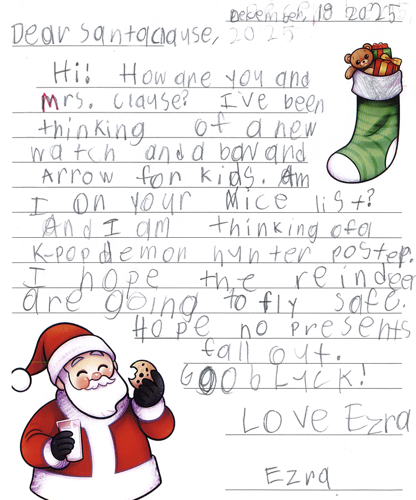 December, 19 2025
Dear Santaclause,
Hi! How are you and
Mrs. Clause? I've been
thinking of a new
watch and a bow and
Arrow for kids. Am
I on your Nice list?
And I am thinking of a
K-pop demon hunter poster.
I hope the reindeer
are going to fly safe.
Hope no presents
fall out.
Goob Luck!
Love Ezra
Ezra